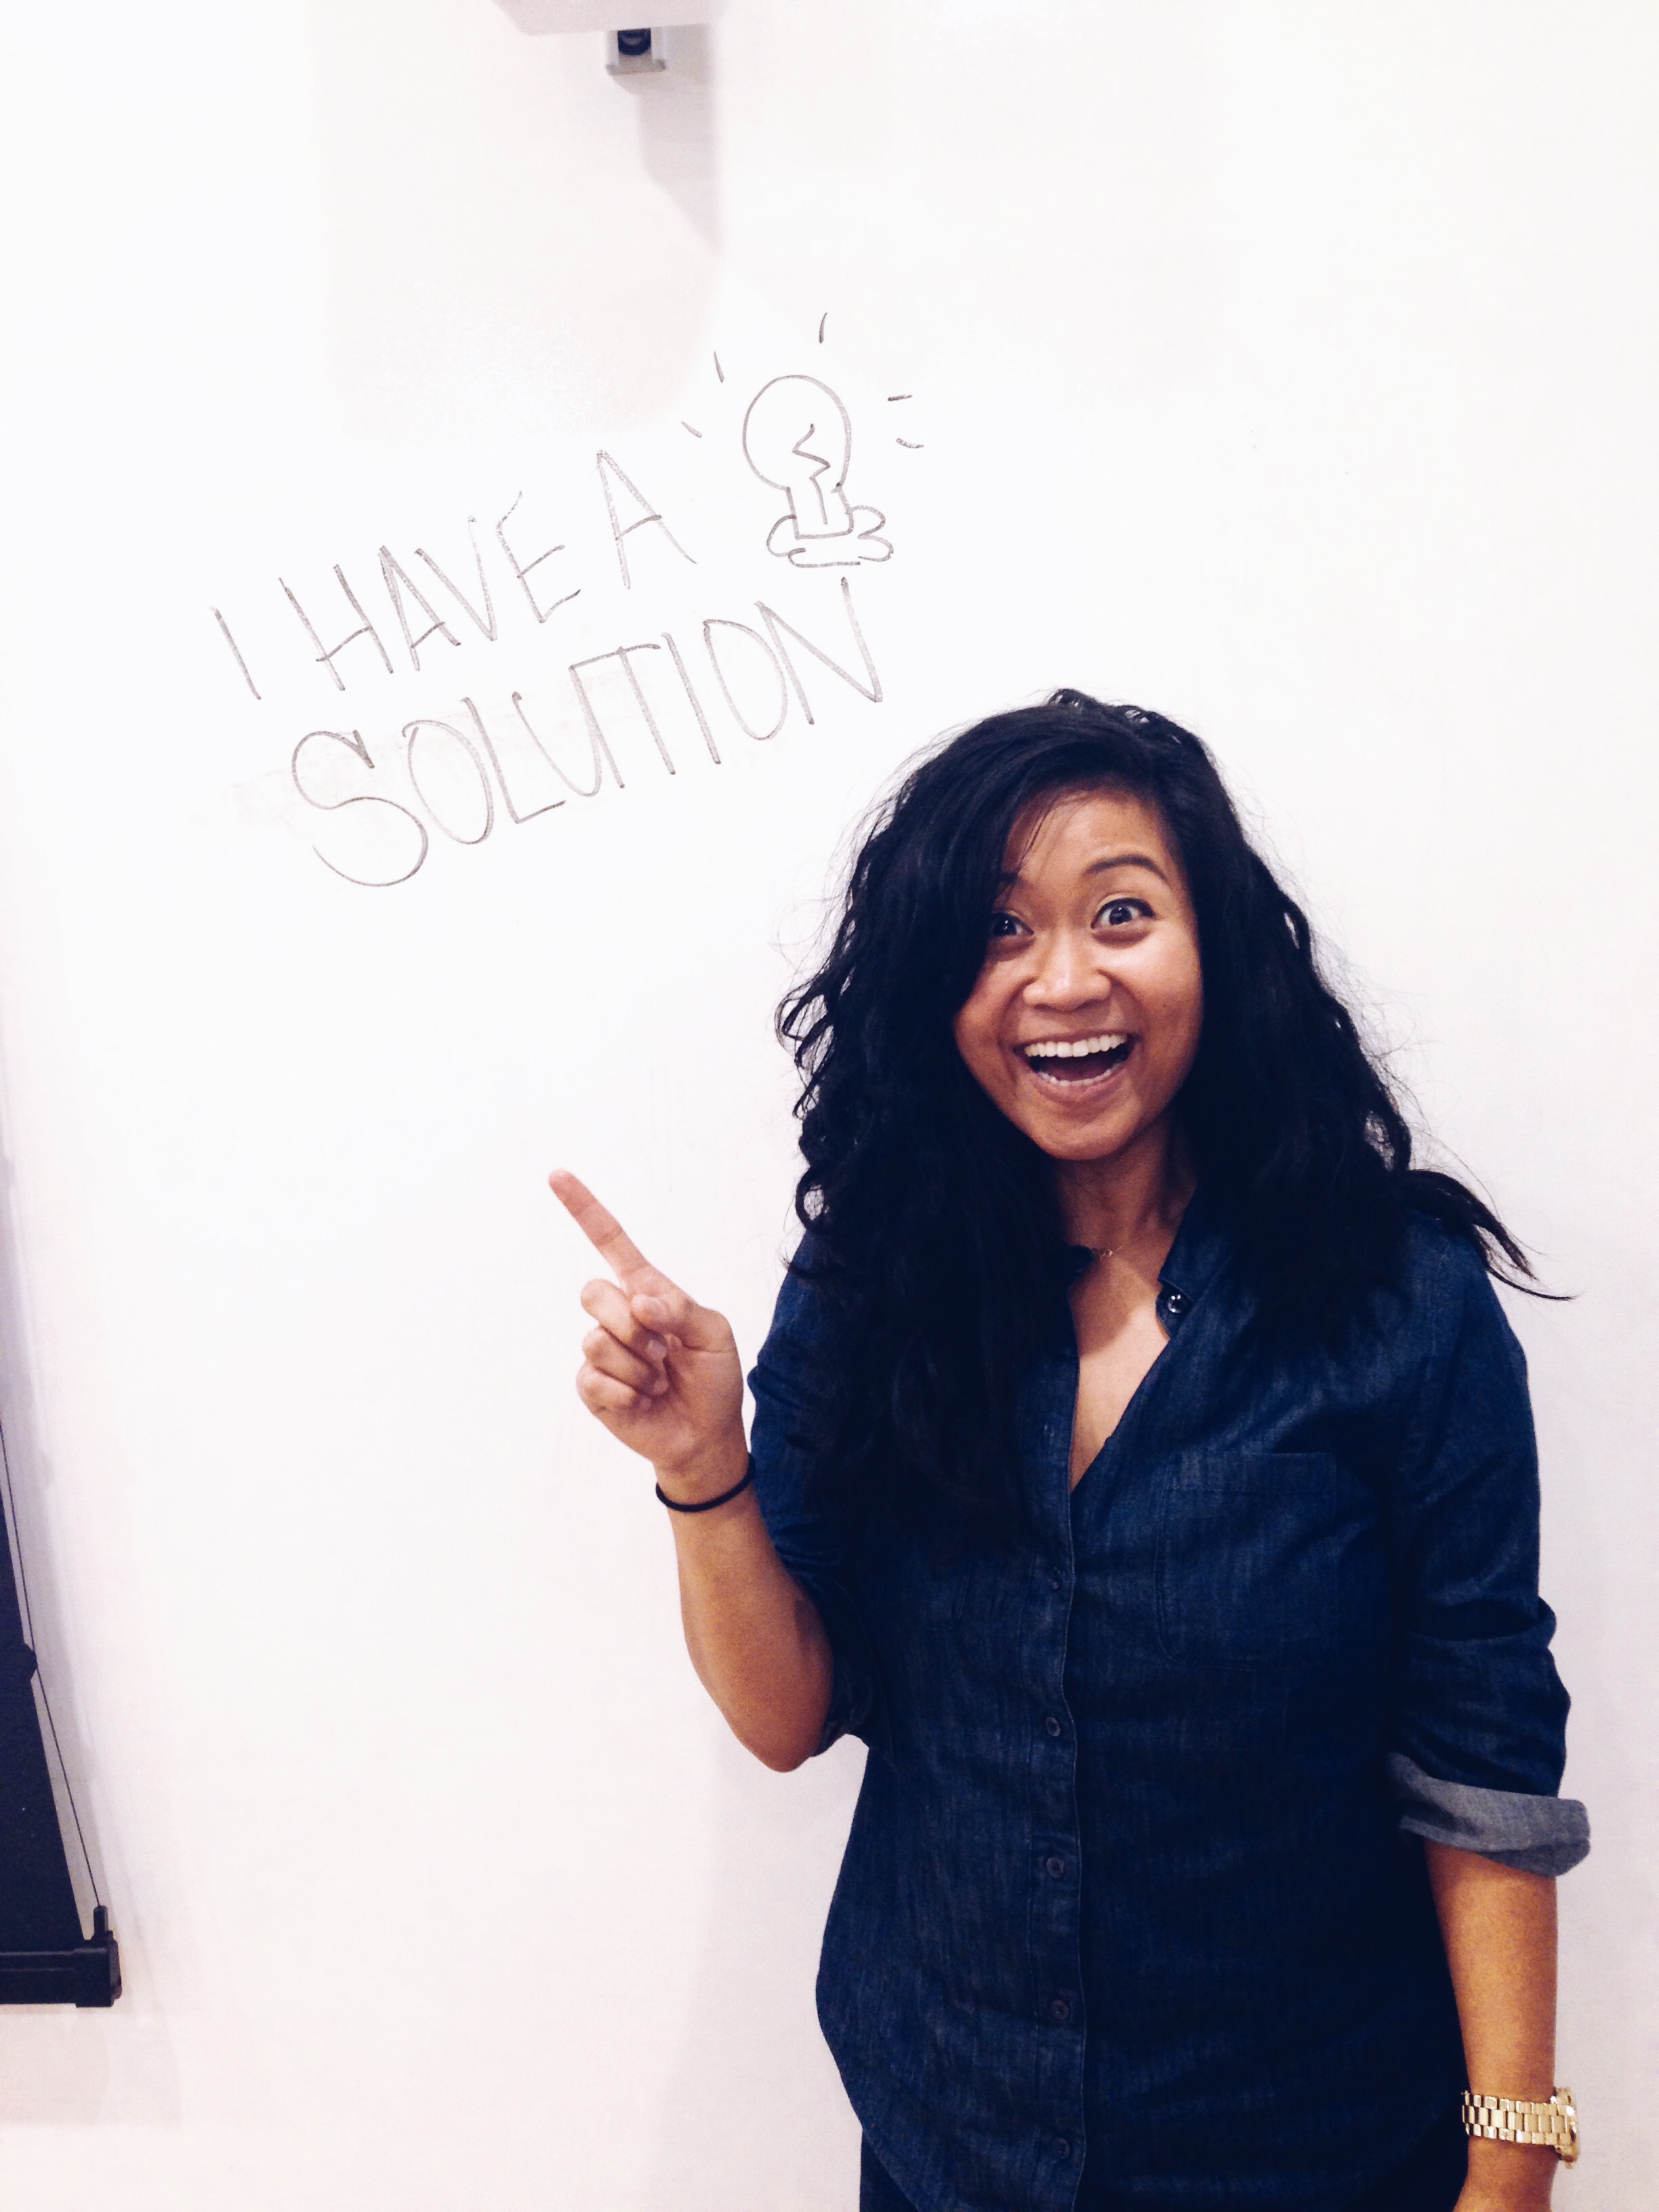 I HAVE A
SOLUTION